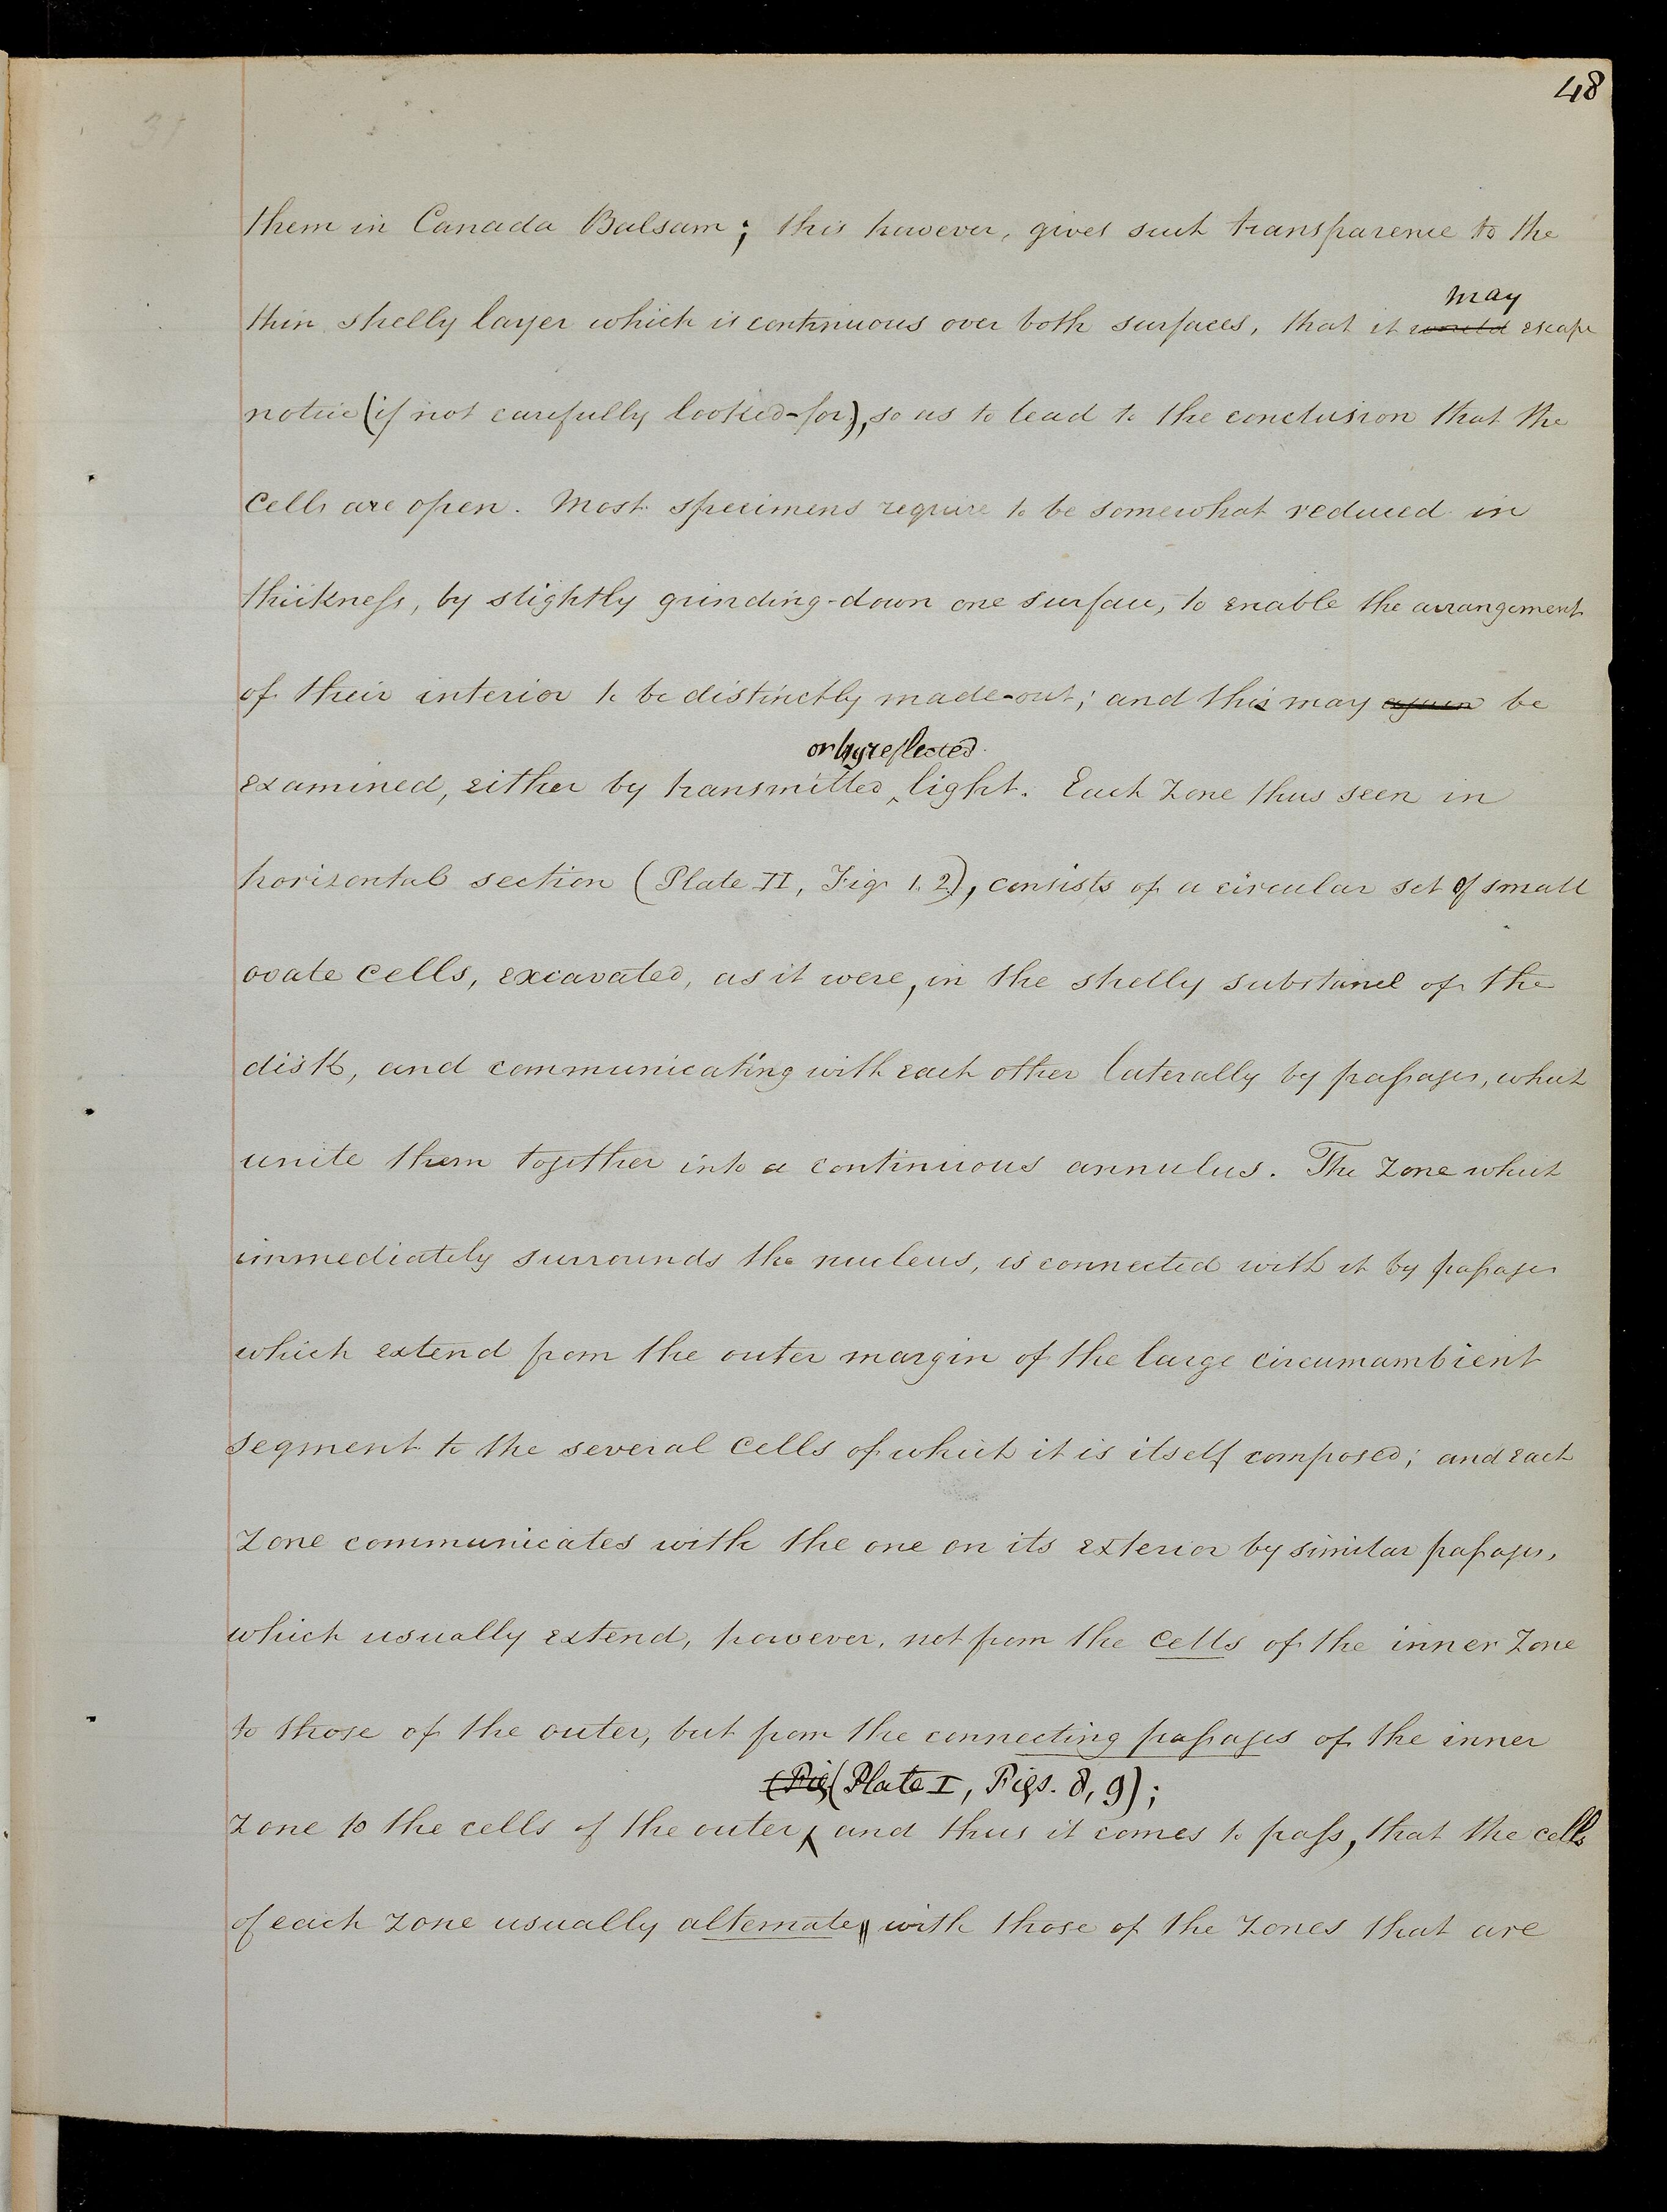 48
them in Canada Balsam; this however, gives such transparence to the
may
thin shelly layer which is continuous over both surfaces, that it would escape
notice (if not carefully looked-for), so as to lead to the conclusion that the
cells are open. Most specimens require to be somewhat reduced in
thickness, by slightly grinding-down one surface, to enable the arrangement
of their interior to be distinctly made-out; and this may again be
or by reflected
examined, either by transmitted ‸ light. Each zone thus seen in
horizontal section (Plate II, Fig. 1. 2), consists of a circular set of small
ovate cells, excavated, as it were, in the shelly substance of the
disk, and communicating with each other laterally by passages, which
unite them together into a continuous annulus. The zone which
immediately surrounds the nucleus, is connected with it by passages
which extend from the outer margin of the large circumambient
segment to the several cells of which it is itself composed; and each
zone communicates with the one on its exterior by similar passages,
which usually extend, however, not from the cells of the inner zone
to those of the outer, but from the connecting passages of the inner
(Fig (Plate I, Figs. 8, 9);
zone to the cells of the outer ‸ and thus it comes to pass, that the cells
of each zone usually alternate with those of the zones that are